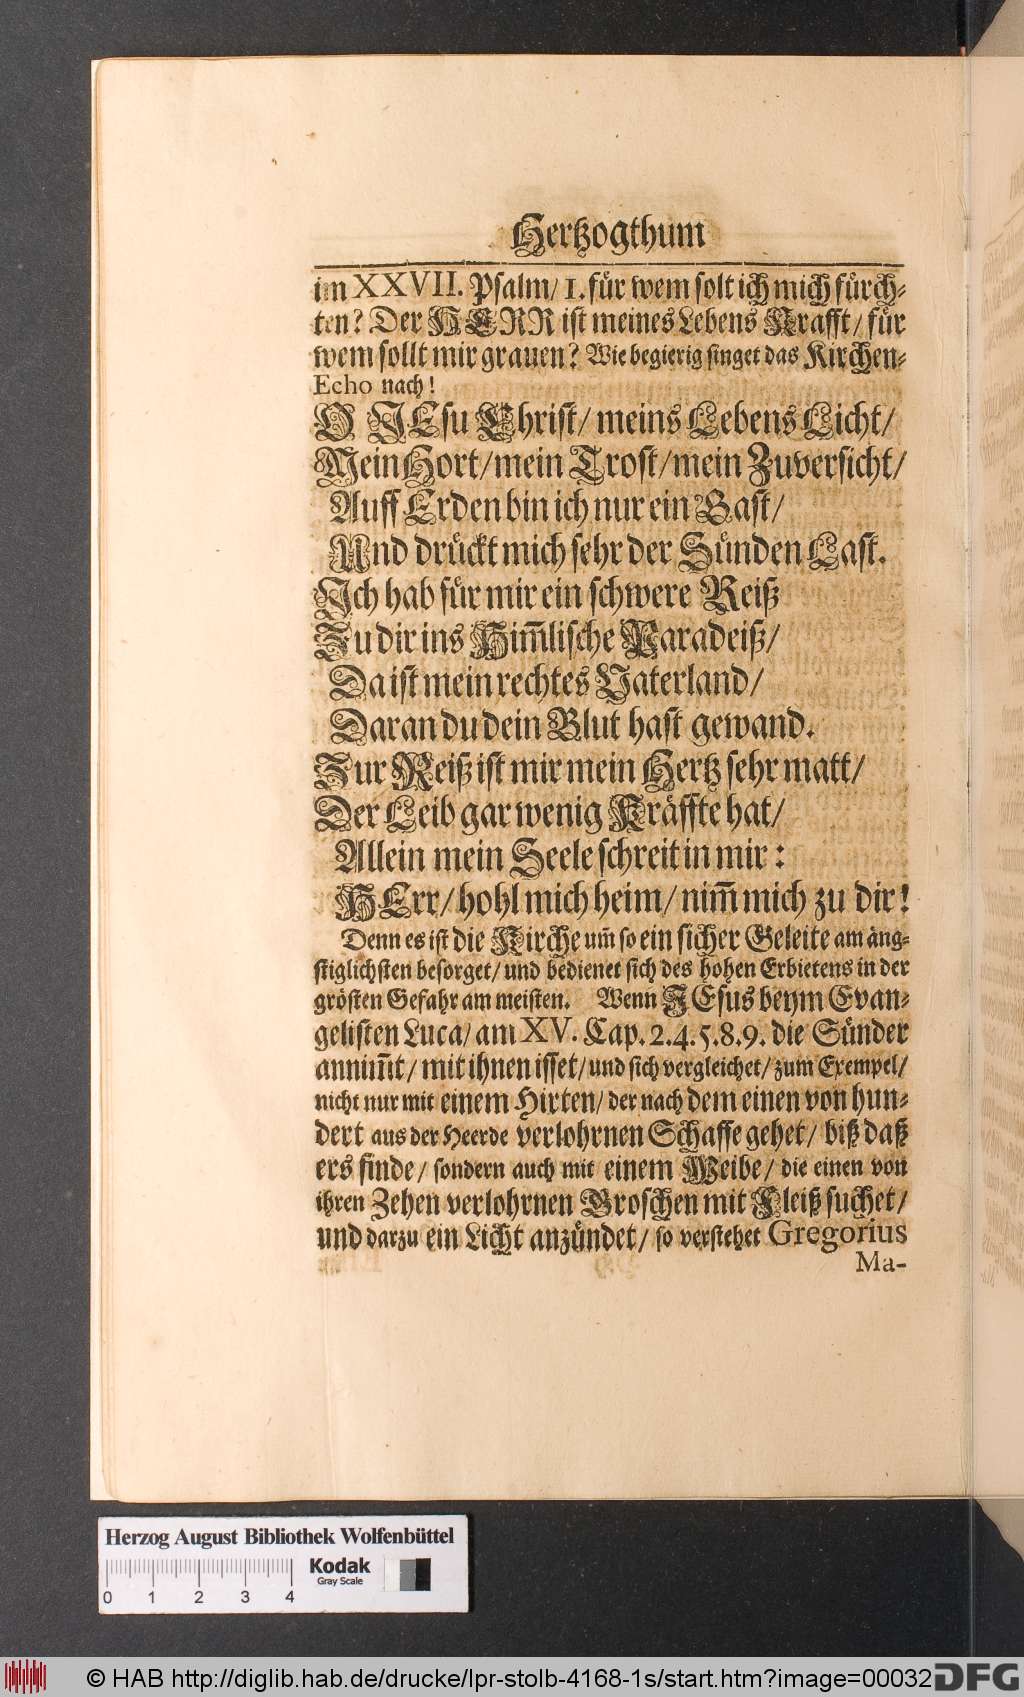 Hertzogthum
im XXVII. Psalm/ 1. für wem solt ich mich fürch-
ten? Der HERR ist meines Lebens Krafft/ für
wem sollt mir grauen? Wie begierig singet das Kirchen-
Echo nach!
O JEsu Christ/ meins Lebens Licht/
Mein Hort/ mein Trost/ mein Zuversicht/
Auff Erden bin ich nur ein Gast/
Und drückt mich sehr der Sünden Last.
Ich hab für mir ein schwere Reiß
Zu dir ins Him̃lische Paradeiß/
Da ist mein rechtes Vaterland/
Daran du dein Blut hast gewand.
Zur Reiß ist mir mein Hertz sehr matt/
Der Leib gar wenig Kräffte hat/
Allein mein Seele schreit in mir:
HErr/ hohl mich heim/ nim̃ mich zu dir!
Denn es ist die Kirche um̃ so ein sicher Geleite am äng-
stiglichsten besorget/ und bedienet sich des hohen Erbietens in der
grösten Gefahr am meisten. Wenn JEsus beym Evan-
gelisten Luca/ am XV. Cap. 2.4.5.8.9. die Sünder
annim̃t/ mit ihnen isset/ und sich vergleichet/ zum Exempel/
nicht nur mit einem Hirten/ der nach dem einen von hun-
dert aus der Heerde verlohrnen Schaffe gehet/ biß daß
ers finde/ sondern auch mit einem Weibe/ die einen von
ihren Zehen verlohrnen Groschen mit Fleiß suchet/
und darzu ein Licht anzündet/ so verstehet Gregorius
Ma-
Herzog August Bibliothek Wolfenbüttel
Kodak
Gray Scale
0 1 2 3 4
© HAB http://diglib.hab.de/drucke/lpr-stolb-4168-1s/start.htm?image=00032
DFG